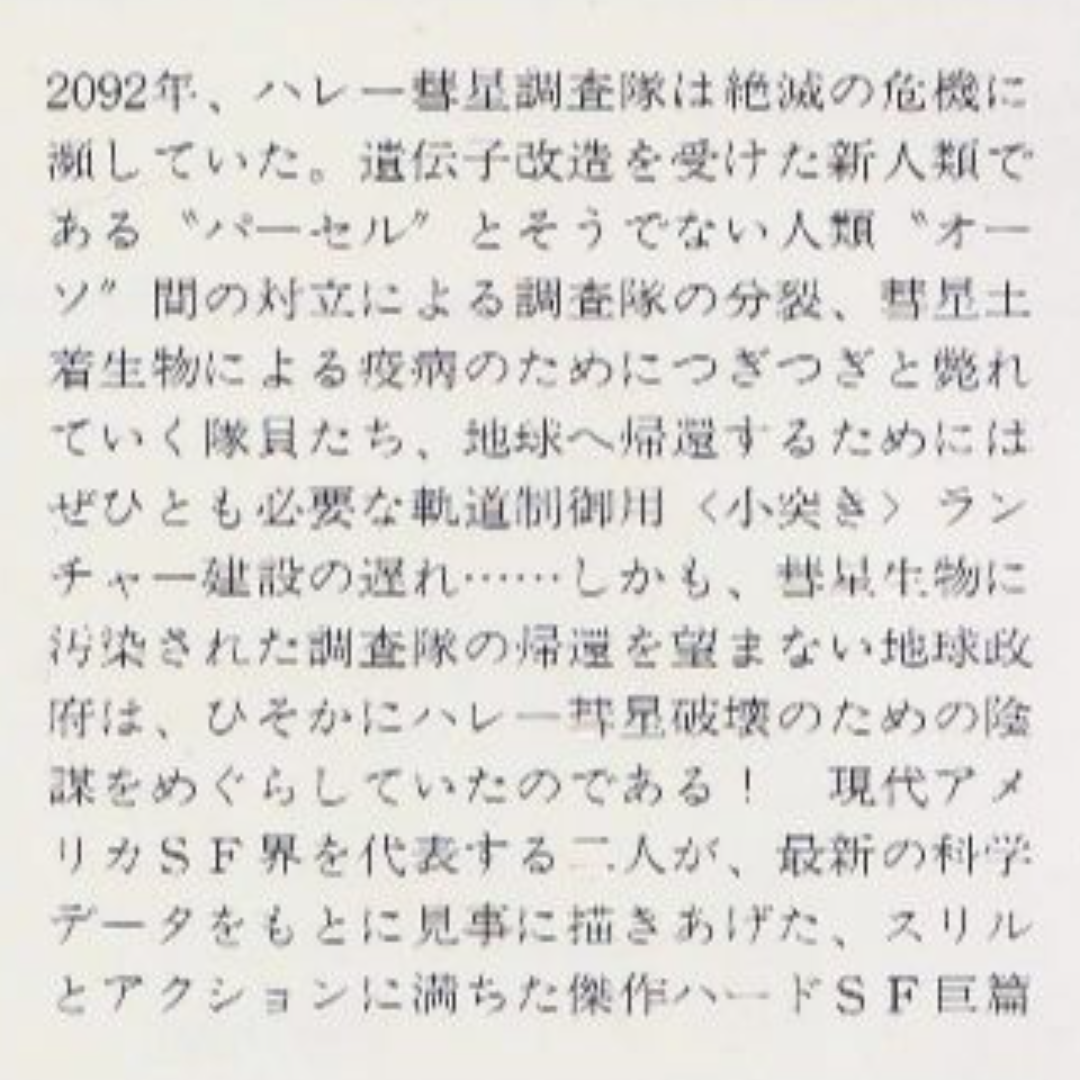 2092年、ハレー彗星調査隊は絶滅の危機に
瀕していた。遺伝子改造を受けた新人類で
ある〝パーセル〟とそうでない人類〝オー
ソ〟間の対立による調査隊の分裂、彗星土
着生物による疫病のためにつぎつぎと斃れ
ていく隊員たち、地球へ帰還するためには
ぜひとも必要な軌道制御用〈小突き〉ラン
チャー建設の遅れ……しかも、彗星生物に
汚染された調査隊の帰還を望まない地球政
府は、ひそかにハレー彗星破壊のための陰
謀をめぐらしていたのである！　現代アメ
リカＳＦ界を代表する二人が、最新の科学
データをもとに見事に描きあげた、スリル
とアクションに満ちた傑作ハードＳＦ巨篇